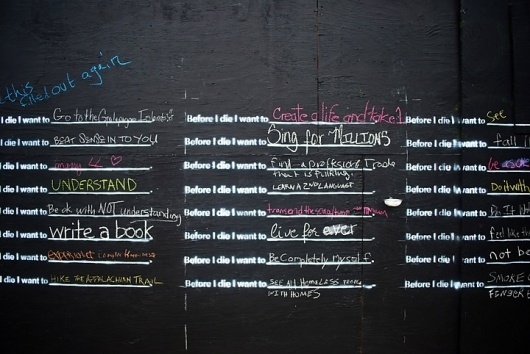 this
out again
I die I want to Go to the Galapagos Islands
I die I want to BEAT SENSE IN TO YOU
I die I want to
I die I want to UNDERSTAND
I die I want to Be ok with NOT understanding
I die I want to write a book
I die I want to
I die I want to HIKE THE APPALACHIAN TRAIL
Before I die I want to Create a life and take 1
Before I die I want to Sing for MILLIONS
Before I die I want to Find a profession/Trade
that is fulfilling.
Before I die I want to LEARN A 2ND LANGUAGE
Before I die I want to transcend the
Before I die I want to live for ever
Before I die I want to Be Completely myself.
Before I die I want to SEE ALL HOMELESS
WITH HOMES
Before I die I want to see
Before I die I want to fall
Before I die I want to be
Before I die I want to Do it with
Before I die I want to Do It
Before I die I want to feel like
Before I die I want to not be
Before I die I want to SMOKE